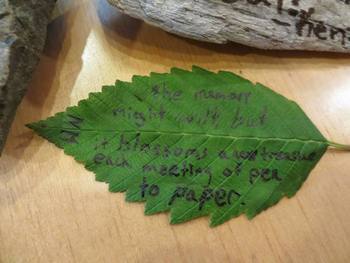 the memory
might wilt but
it blossoms a new treasure
each meeting of pen
to paper.